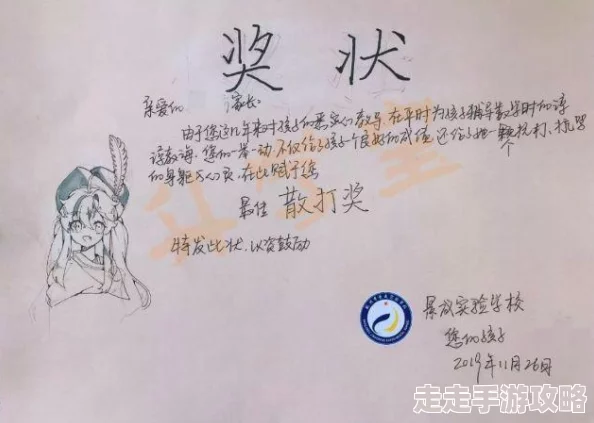 奖状
亲爱的 家长
由于您这几年来对孩子的悉心教导，在平时为孩子辅导数学时的谆
谆教诲，您的一举一动不仅给了孩子一个良好的成绩，还给了她一颗抗打、抗骂
的身躯与心灵，在此赋予您
最佳 散打奖
特发此状，以资鼓励
景成实验学校
您的孩子
2019年11月26日
走走手游攻略